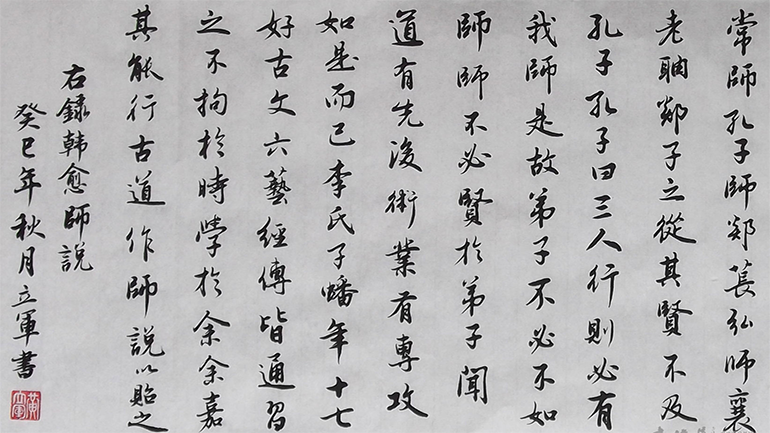 常師孔子師郯萇弘師襄
老聃郯子之從其賢不及
孔子孔子曰三人行則必有
我師是故弟子不必不如
師師不必賢於弟子聞
道有先後術業有專攻
如是而已李氏子蟠年十七
好古文六藝經傳皆通習
之不拘於時學於余余嘉
其能行古道作師說以貽之
右錄韓愈師說
癸巳年秋月立軍書